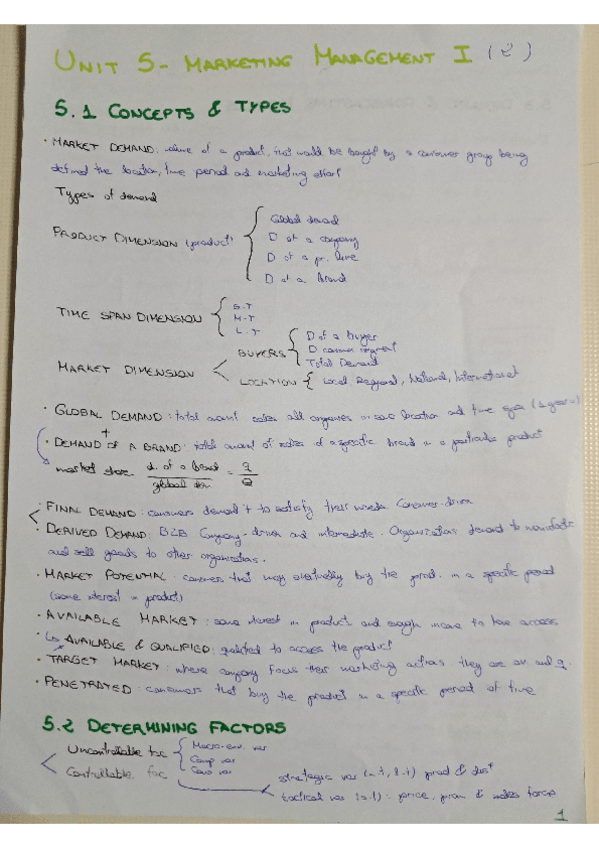 UNIT 5 - MARKETING MANAGEMENT I (2)
5.1 CONCEPTS & TYPES
· MARKET DEMAND: volume of a product, that would be bought by a consumer group being
defined the location, time period and marketing effort
Types of demand
PRODUCT DIMENSION (product)
Global demand
D of a company
D of a pr. line
D of a brand
TIME SPAN DIMENSION
S-T
M-T
L-T
MARKET DIMENSION
BUYERS
D of a buyer
D consum segment
Total Demand
LOCATION
Local Regional, National, International
· GLOBAL DEMAND: total amount sales all companies in same location and time
· DEMAND OF A BRAND: total amount of sales of a specific brand in a particular product
market share d. of a brand / global dem = q / Q
· FINAL DEMAND: consumers demand + to satisfy their needs. Consumer-driven
· DERIVED DEMAND: B2B Company-driven and intermediate. Organisations demand to manufacture
and sell goods to other organisations.
· MARKET POTENTIAL: consumers that may eventually buy the prod. in a specific period
(some interest in product)
· AVAILABLE MARKET: some interest in product and enough income to have access
· AVAILABLE & QUALIFIED: qualified to access the product
· TARGET MARKET: where company focus their marketing actions. they are av. and q.
· PENETRATED: consumers that buy the product in a specific period of time
5.2 DETERMINING FACTORS
Uncontrollable fac
Macro-env. var
Comp var
Cons var
Controllable fac
strategic var (m.t, l.t) prod & dist
tactical var (s.t): price, prom & sales force
1